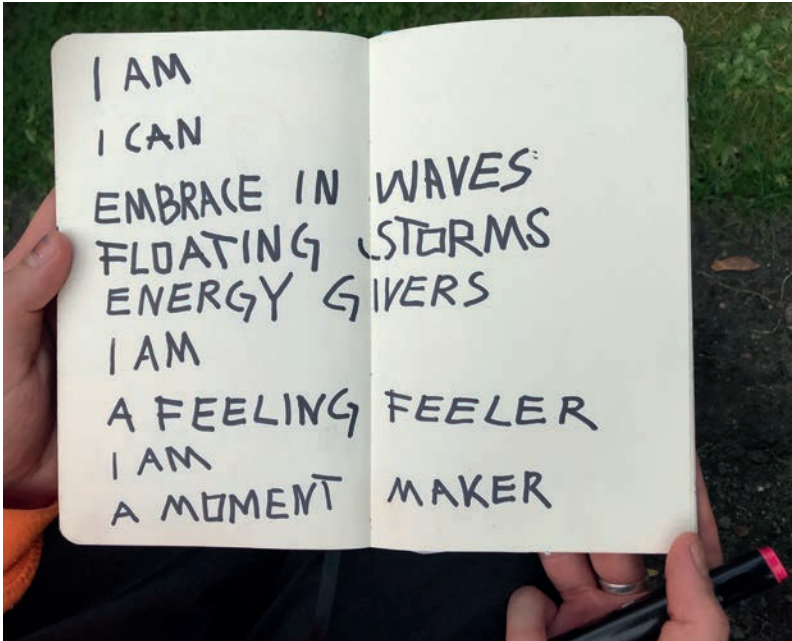 I AM
I CAN
EMBRACE IN WAVES
FLOATING STORMS
ENERGY GIVERS
I AM
A FEELING FEELER
I AM
A MOMENT MAKER